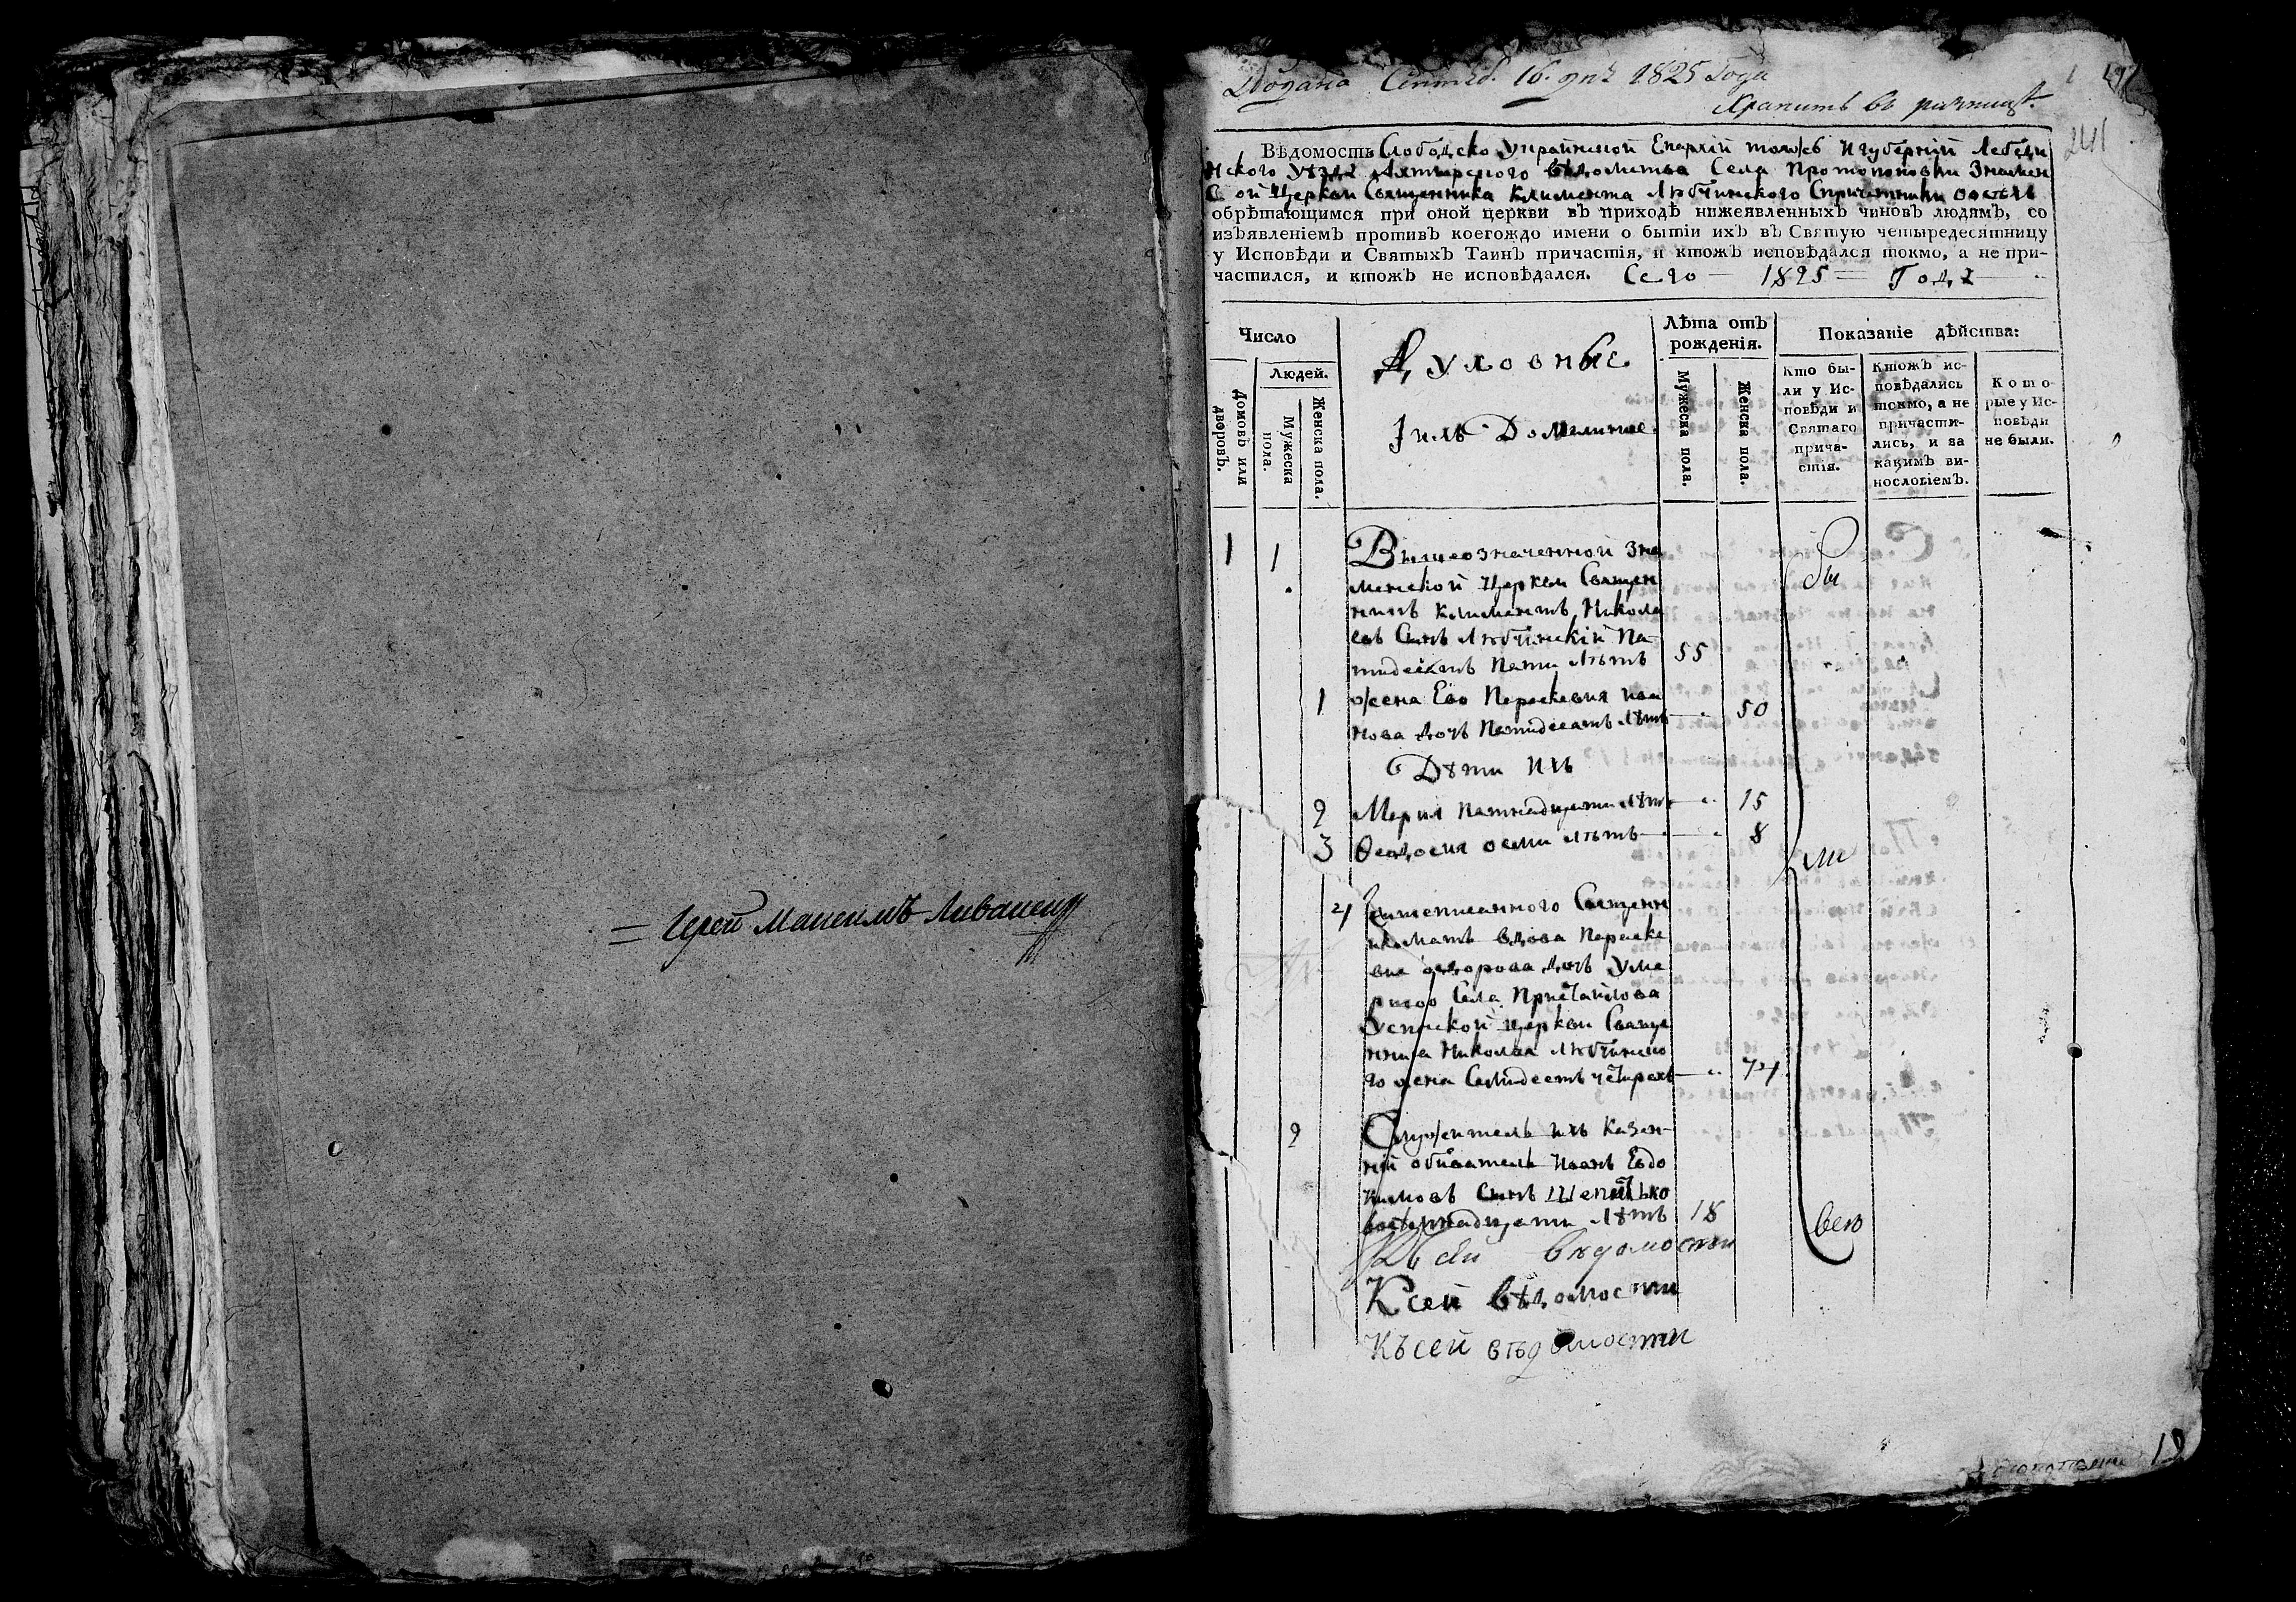 Іерей Максимъ
Подана Сентяб. 16. дня 1825 Года
Хранить въ
241
Вѣдомость Слободско Украинской Епархій тожъ Игуберній Лебеди
нского уѣзда Ахтырского вѣдомства Села Протопоповки Знамен
ской Церкви Священника Климента Любчинского Спричетники
обрѣтающимся при оной церкви въ приходѣ нижеявленныхъ чиновъ людямъ, со
изъявленіемъ противъ коегождо имени о бытіи ихъ въ Святую четыредесятницу
у Исповѣди и Святыхъ Таинъ причастія, и ктожъ исповѣдался токмо, а не при-
частился, и ктожъ не исповѣдался. Сего 1825 Года
Число
Людей.
Домовъ или дворовъ.
Мужеска пола.
Женска пола.
Духовные
Іихъ Домашние
Лѣта отъ рожденія.
Мужеска пола.
Женска пола.
Показаніе дѣйства:
Кто бы-
ли у Ис-
повѣди и
Святаго
прича-
стія.
Ктожъ ис-
повѣдались
токмо, а не
причасти-
лись, и за
какимъ ви-
нословіемъ.
Кото-
рые у Ис-
повѣди
не были.
1 1 Вышеозначенной Зна бы
менской Церкви Священ
никъ Климентъ Никола
евъ Синъ Любчинскій Пя-
тидесятъ Пяти лѣтъ 55
1 жена Ево Параскевия Ива
нова дочъ Пятидесятъ лѣтъ 50
Дѣти Ихъ
2 Мария Пятнадцати лѣтъ 15
3 Ѳеодосия осми лѣтъ 8
ли
4 Вишеписанного Священн
ика Мать вдова Параске
вия Ѳедорова дочъ Уме
ршого Села Пристайлова
Успенской Церкви Свяще
нника Николая Любчинско
го жена Семидесятъ четирехъ 74
2 Служитель ихъ Казен-
ній обиватель Иванъ Евдо
кимовъ Синъ
восемнадцати лѣтъ 18
всю
Къ сей вѣдомости
Ксей вѣдомости
Къ сей вѣдомости